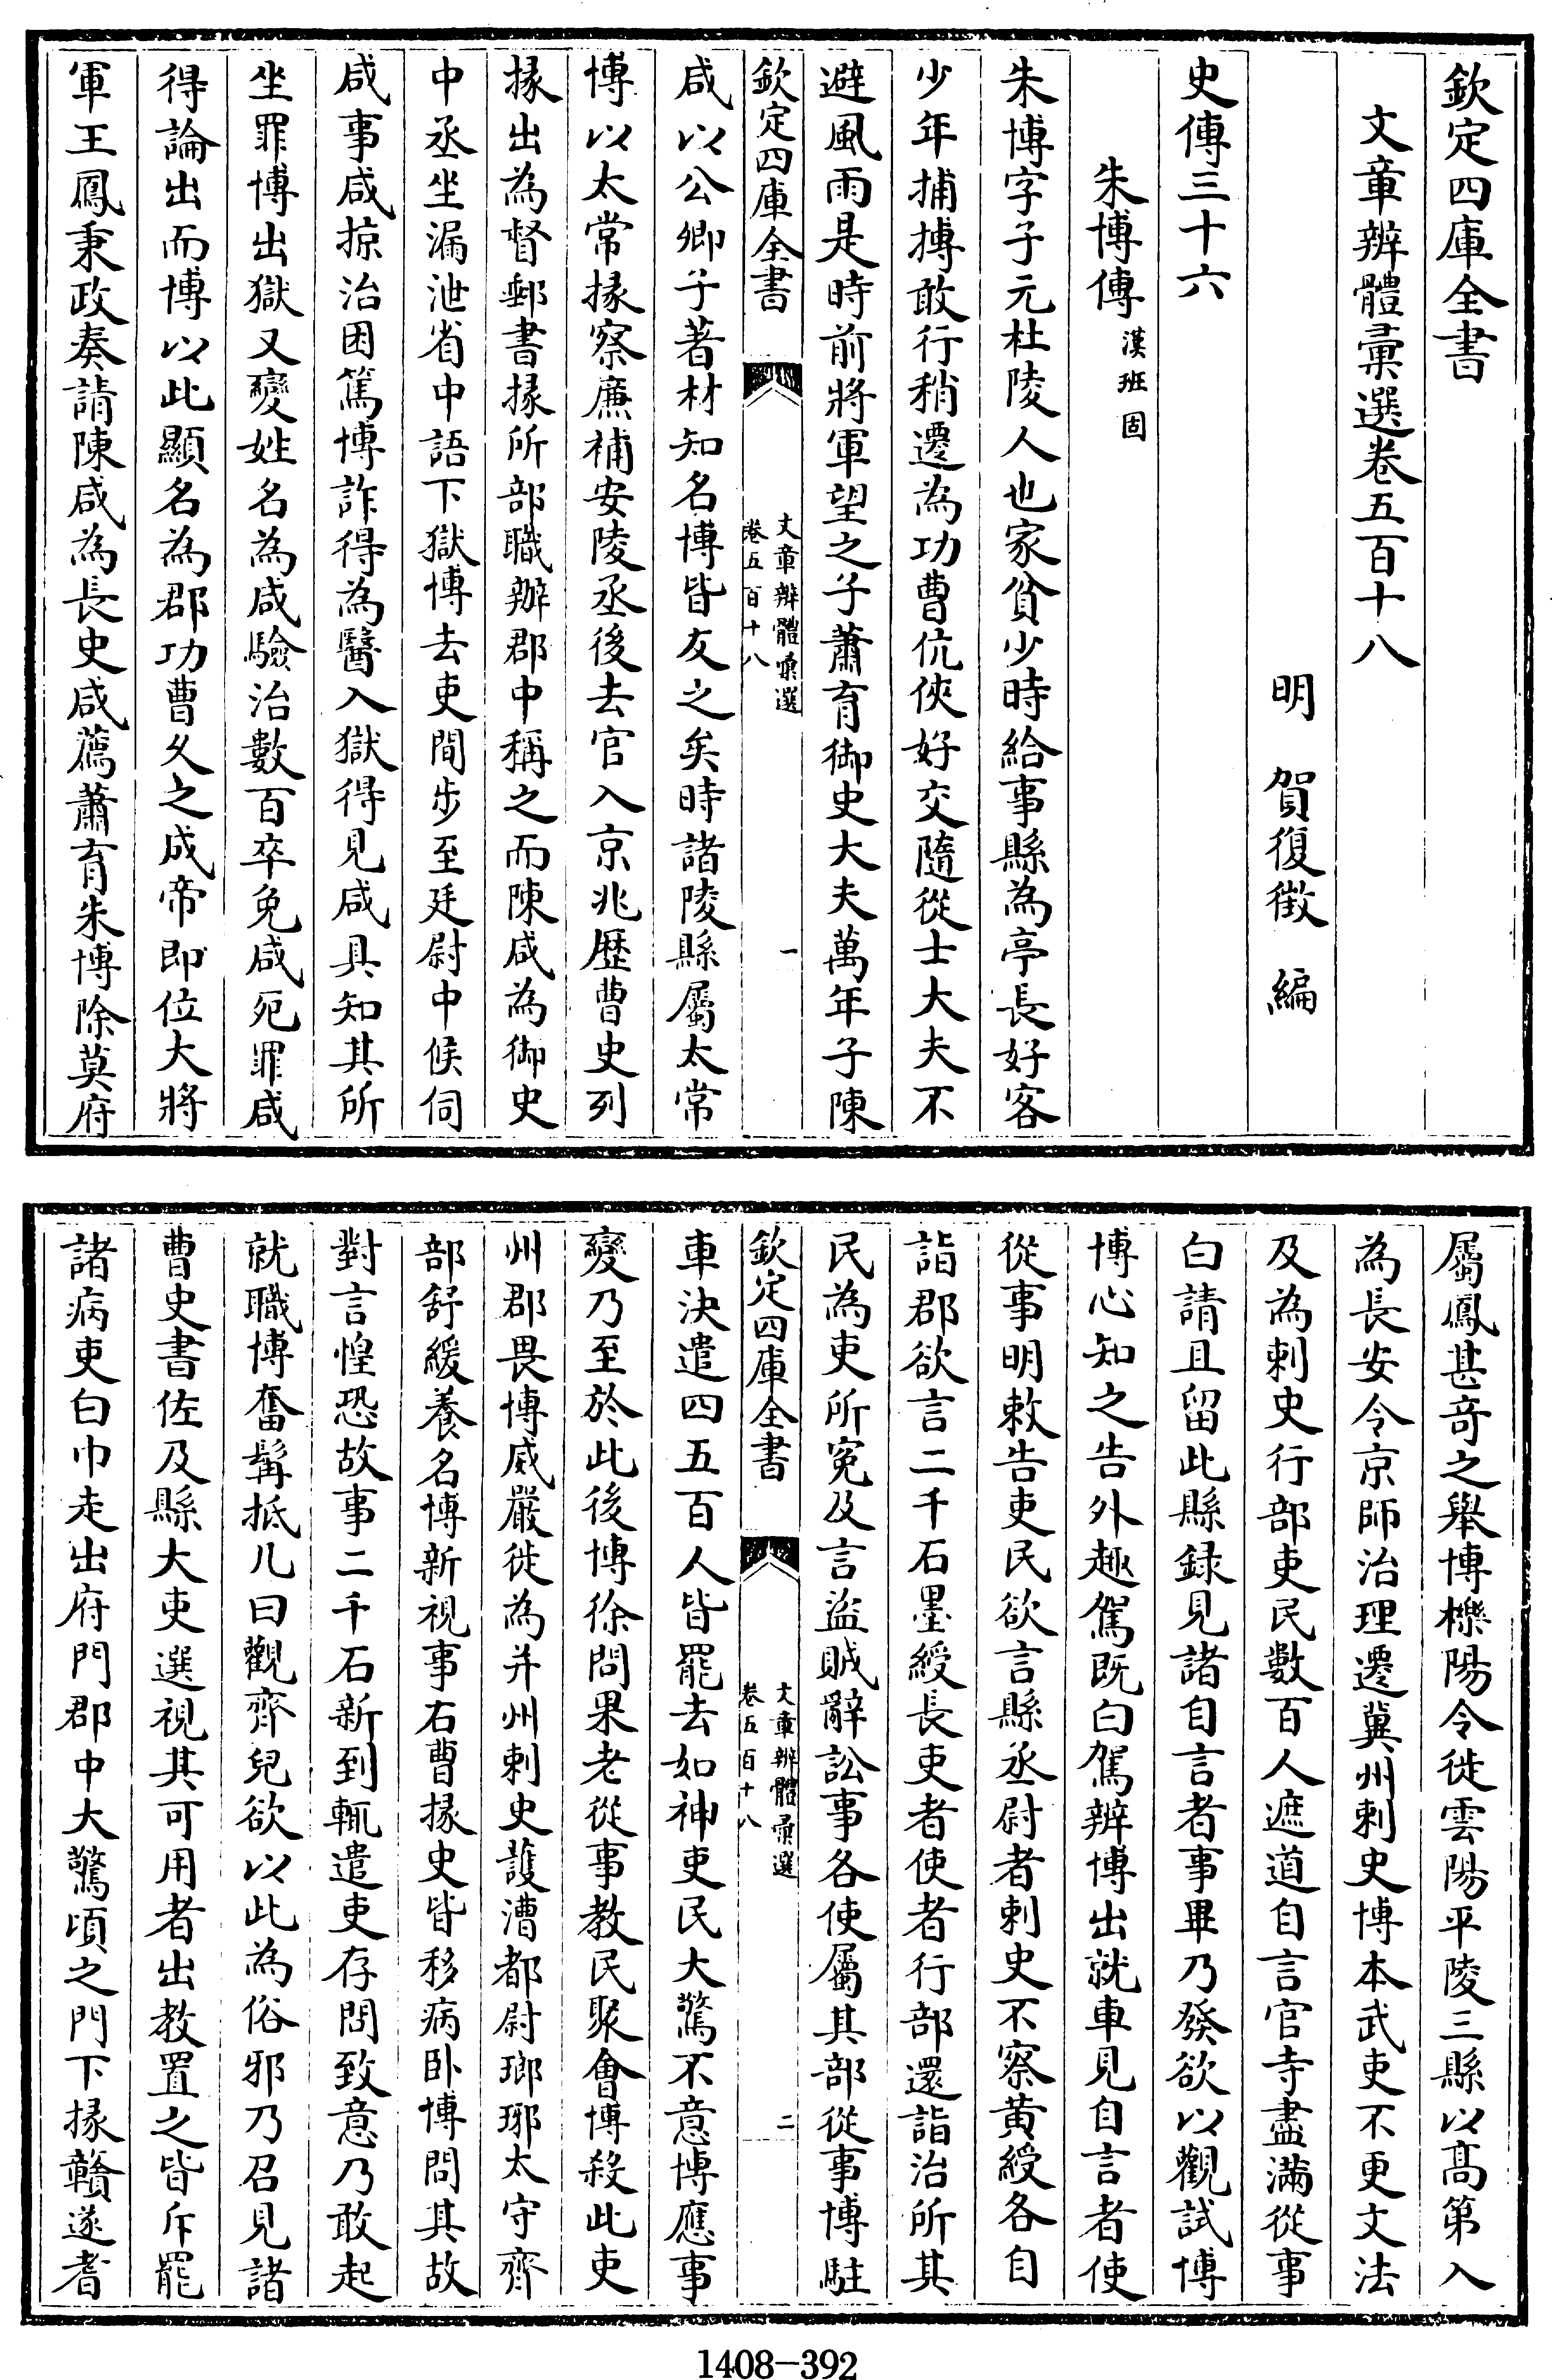 欽定四庫全書
文章辨體彙選卷五百十八
明　賀復徵　編
史傳三十六
朱博傳漢班固
朱博字子元杜陵人也家貧少時給事縣為亭長好客
少年捕搏敢行稍遷為功曹伉俠好交隨從士大夫不
避風雨是時前將軍望之子蕭育御史大夫萬年子陳
欽定四庫全書
文章辨體彙選
卷五百十八
一
咸以公卿子著材知名博皆友之矣時諸陵縣屬太常
博以太常掾察廉補安陵丞後去官入京兆歷曹史列
掾出為督郵書掾所部職辦郡中稱之而陳咸為御史
中丞坐漏泄省中語下獄博去吏間步至廷尉中候伺
咸事咸掠治困篤博詐得為醫入獄得見咸具知其所
坐罪博出獄又變姓名為咸驗治數百卒免咸死罪咸
得論出而博以此顯名為郡功曹久之成帝即位大將
軍王鳳秉政奏請陳咸為長史咸薦蕭育朱博除莫府
屬鳳甚奇之舉博櫟陽令徙雲陽平陵三縣以高第入
為長安令京師治理遷冀州刺史博本武吏不更文法
及為刺史行部吏民數百人遮道自言官寺盡滿從事
白請且留此縣録見諸自言者事畢乃發欲以觀試博
博心知之告外趣駕既白駕辨博出就車見自言者使
從事明敕告吏民欲言縣丞尉者刺史不察黄綬各自
詣郡欲言二千石墨綬長吏者使者行部還詣治所其
民為吏所冤及言盜賊辭訟事各使屬其部從事博駐
欽定四庫全書
文章辨體彙選
卷五百十八
二
車決遣四五百人皆罷去如神吏民大驚不意博應事
變乃至於此後博徐問果老從事教民聚會博殺此吏
州郡畏博威嚴徙為并州刺史護漕都尉瑯琊太守齊
部舒緩養名博新視事右曹掾史皆移病卧博問其故
對言惶恐故事二千石新到輒遣吏存問致意乃敢起
就職博奮髯抵几曰觀齊兒欲以此為俗邪乃召見諸
曹史書佐及縣大吏選視其可用者出教置之皆斥罷
諸病吏白巾走出府門郡中大驚頃之門下掾贛遂耆
1408-392